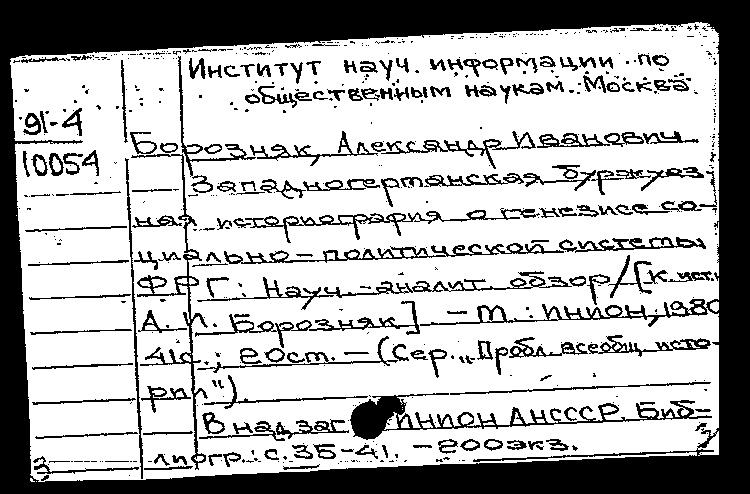 Институт науч. информации по
общественным наукам. Москва.
91-4
10054
Борозняк, Александр Иванович
Западногерманская буржуаз-
ная историография о генезисе со-
циально-политической системы
ФРГ: Науч.-аналит. обзор/[К. ист. н.
А. И. Борозняк] – М.: ИНИОН, 1980
41с.; 20см. – (Сер. „Пробл. всеобщ. исто-
рии").
В надзаг ИНИОН АН СССР. Биб-
лиогр.: с. 35-41. – 200экз.
3